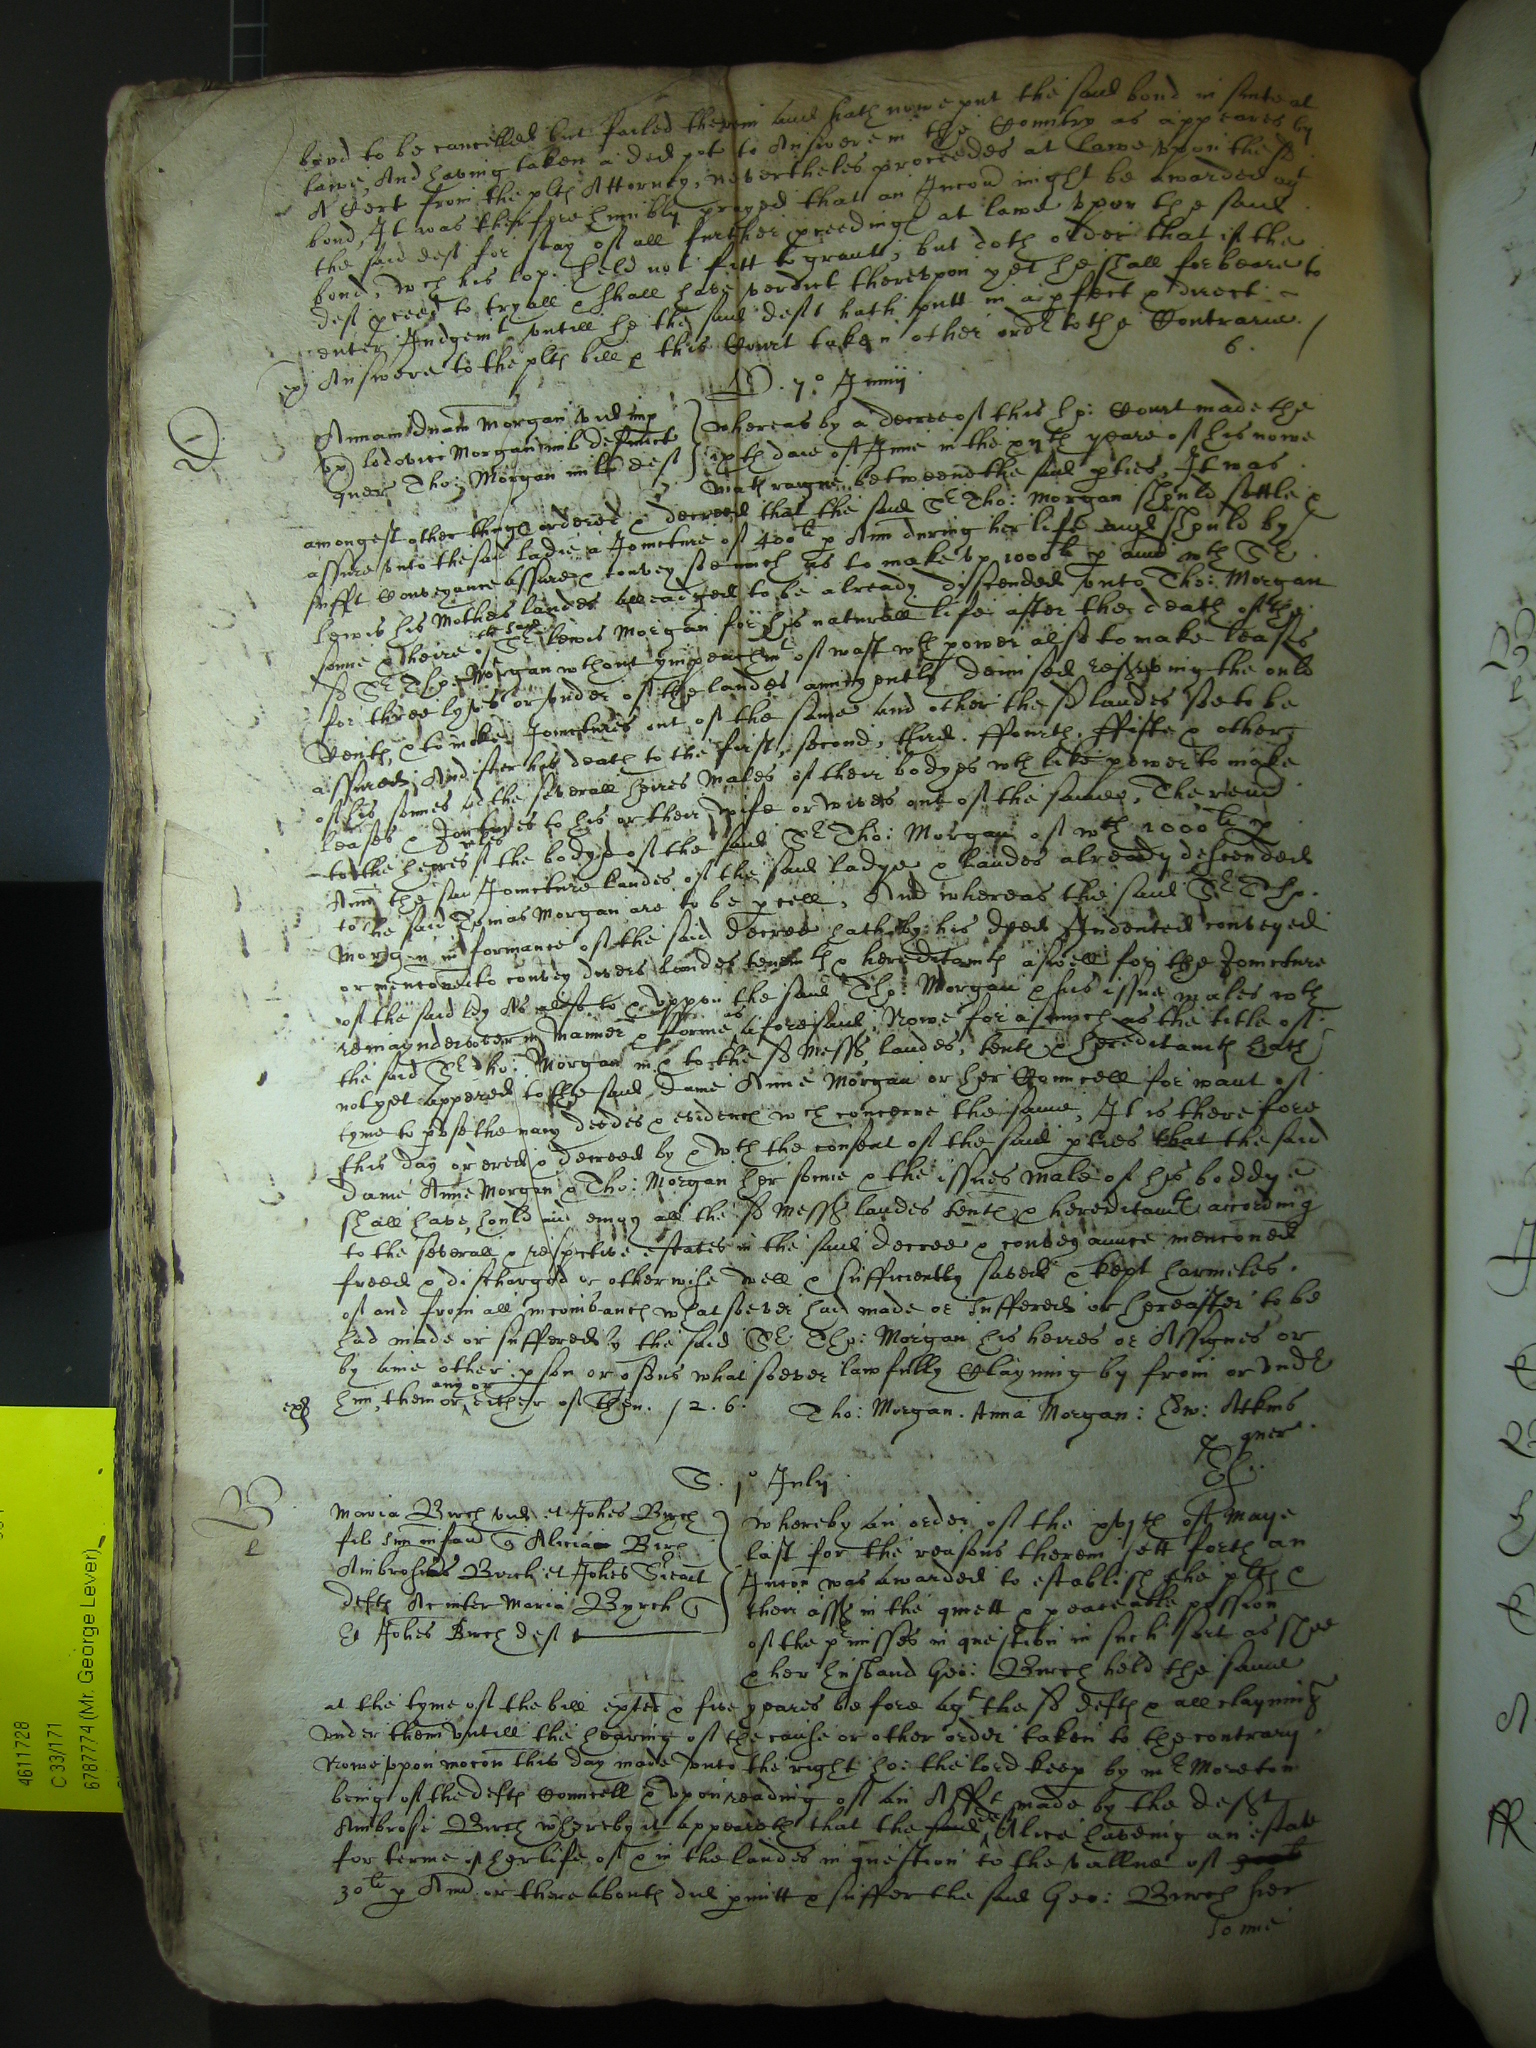 bond to be cancelled but failed therein and hath nowe put the said bond in suite at
lawe, And having taken a ded pot to Answere in the Country as appeares by
A Cert from the plts Attorney, nevertheles proceedes at lawe upon the sd
bond, It was therefore humbly prayed that an Iniuncon might be awarded agt
the said deft for stay of all further pceedings at lawe upon the said
bond, wch his lop. held not fitt to graunt, but doth order that if the
deft pceed to tryall & shall have verdict thereupon yet he shall forbeare to
enter Judgemt untill he the said deft hath putt in a pfect & direct
Answere to the plts bill & this Court taken other order to the Contrarie.
6.
D. 7º Junii
Annam Dnam Morgan vid nup
ux Lodovici Morgan milit defunct
quer Tho: Morgan milit deft
whereas by a decree of this ho: Court made the
ixth daie of June in the xiith yeare of his nowe
Mats raigne betweene the said pties, It was
amongest other things ordered & decreed that the said Sr Tho: Morgan should settle &
assure unto the said ladie a Joincture of 400li p Ann during her life and should by
sufft Conveyance assure & convey soe much as to make up 1000li p ann wth Sr
Lewis his Mothers landes alleadged to be already discended unto Tho: Morgan
sonne & heire of the said Sr Lewis Morgan for his naturall life after the death of the
sd Sr Tho: Morgan without ympeachmt of wast wth power also to make leases
for three lyves or under of the landes aunciently demised reserving the ould
Rents, & to make Joinctures out of the same and other the sd landes soe to be
assured, And after his death to the first, second, third, ffourth, ffifte & other
of his sonnes & the severall heires Males of their bodyes wth like power to make
leases & Joinctures to his or their wife or wives out of the same, The remd
to the heires of the bodye of the said Sr Tho: Morgan of wch 1000li p
Ann the said Joincture landes of the said ladye & landes already descended
to the said Tomas Morgan are to be pcell, And whereas the said Sr Tho.
Morgan in pformance of the said decree hath by his deed Indented conveyed
or menconed to convey divers landes tenemts & hereditamts aswell for the Joincture
of the said lady As alsoe to & uppon the said Tho: Morgan & his issue males wth
remaynders over in manner & forme as aforesaid, Nowe for asmuch as the title of
the said Sr Tho: Morgan in & to the sd Mess landes, tents & hereditamts hath
not yet appered to the said dame Anne Morgan or her Councell for want of
tyme to pose the many deedes & evidences wch concerne the same, It is therefore
this day ordered & decreed by & wth the consent of the said pties that the said
dame Anne Morgan & Tho: Morgan her sonne & the issues male of his boddye
shall have, hould and enioy all the sd Mess landes tents & hereditamts according
to the severall & respective estates in the said decree & conveyaunce menconed
freed & discharged or otherwise well & sufficiently saved & kept harmeles
of and from all incombrances whatsoever had made or suffered or hereafter to be
had made or suffered by the said Sr Tho: Morgan his heires or Assignes or
by anie other pson or psons whatsoever lawfully Clayming by from or under
him, them or any or either of them. 12. 6. Tho: Morgan. Anna Morgan: Edw: Atkins
p quer.
S. 1º July
Maria Birch vid et Johes Birch
fil infant Alicia Birch
Ambrosius Birch et Johes
defts Ac inter Maria Byrch
Et Johes Birch deft
whereby an order of the xvith of Maye
last for the reasons therein sett forth an
Iniuncon was awarded to establish the plts &
their asss in the quiett & peaceable possion
of the pmisses in question in such sort as shee
& her husband Geo: Birch held the same
at the tyme of the bill exhted & five yeares before agt the sd defts & all clayming
under them untill the hearing of the cause or other order taken to the contrary.
Nowe upon mocon this day made unto the right ho: the lord keep by mr Moreton
being of the defts Councell & upon reading of an Afft made by the deft
Ambrose Birch whereby it appeareth that the said Alice haveing an estate
for terme of her life of & in the landes in question to the vallue of
30li p Ann or thereabouts did pmitt & suffer the said Geo: Birch her
sonne
4611728
C 33/171
6787774 (Mr. George Lever)